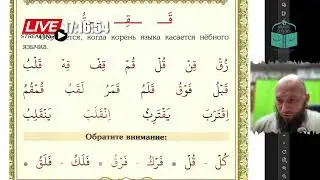 قَ قِ قُ
LIVE 17:16:54
когда корень языка касается нёбного
язычка.
زُقْ قِنْ قُلْ قُمْ قِفْ قِهْ قَلْبُ
قَبْلُ فَوْقُ قَلَمُ قَمَرُ لَقَبُ قُمْقُمُ
اِقْتَرَبَ يَقْتَرِبُ اِنْقَلَبَ يَنْقَلِبُ
Обратите внимание:
كُلْ - قُلْ * فَرْكُ - فَرْقُ * فَلَكُ - فَلَقُ